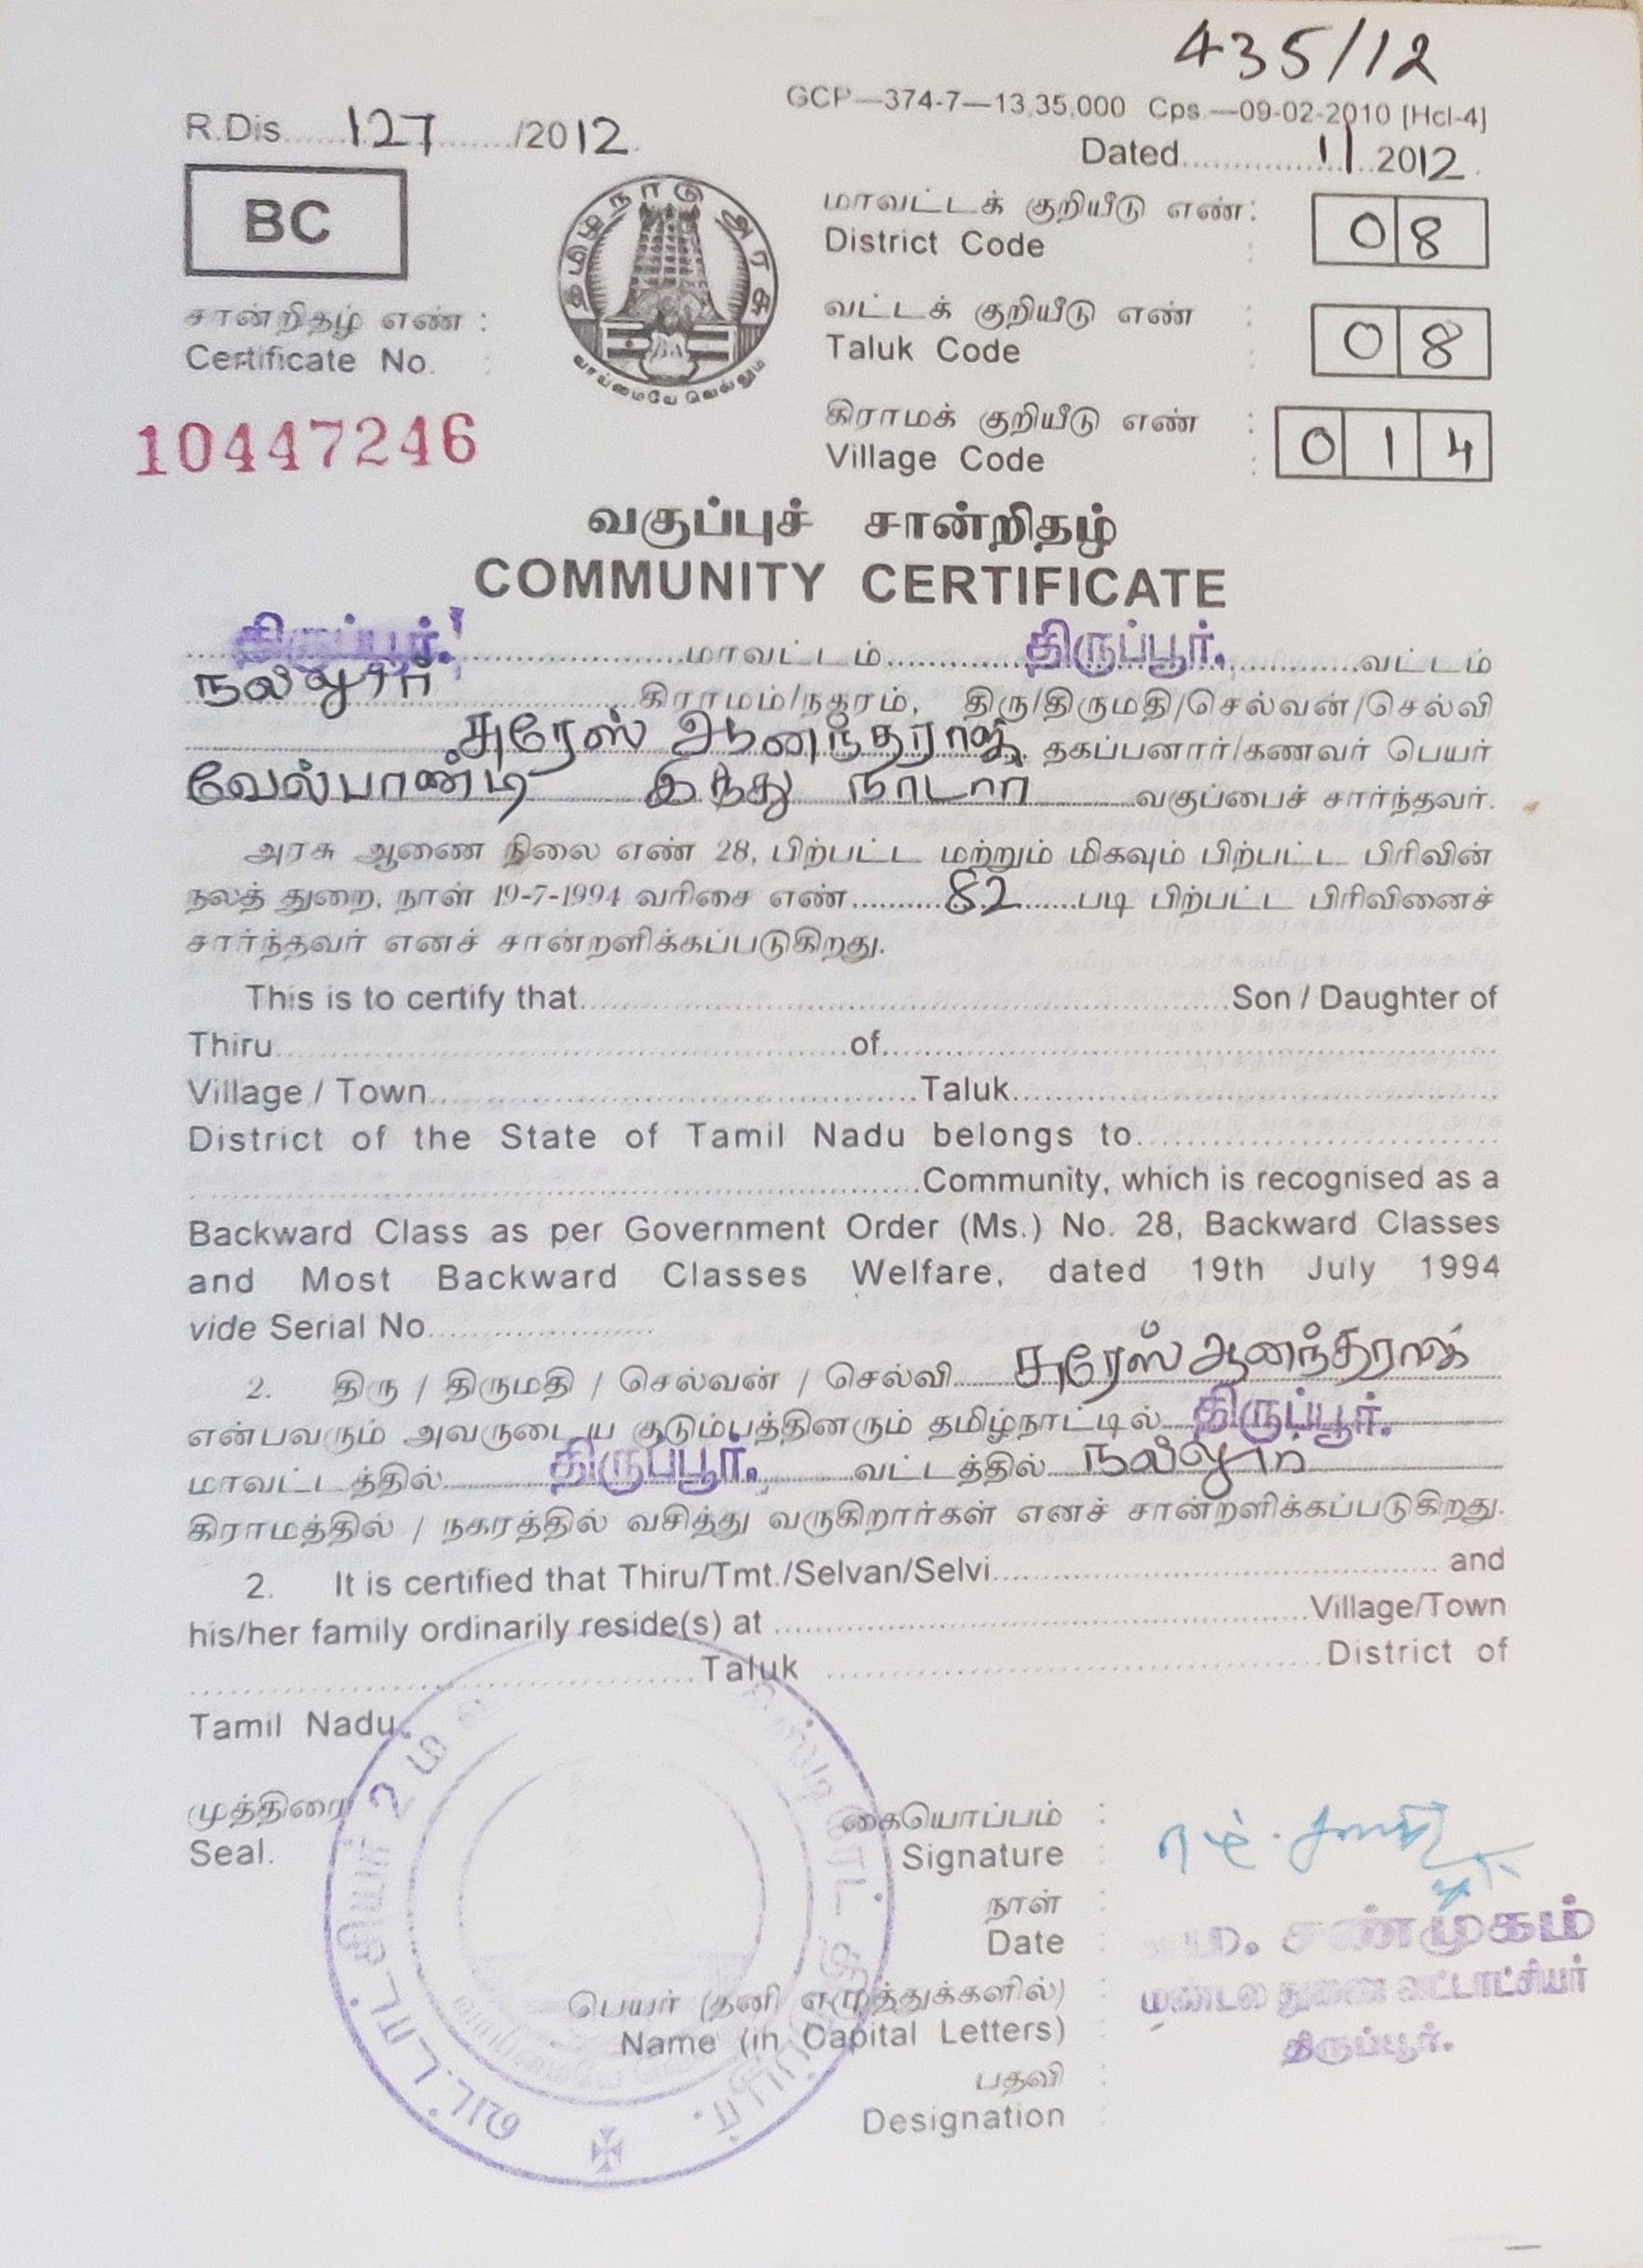 435/12
GCP—374-7—13,35,000 Cps.—09-02-2010 [Hcl-4]
R.Dis......127......../2012.
Dated..............11.2012.
BC
தமிழ்நாடு அரசு
வாய்மையே வெல்லும்
மாவட்டக் குறியீடு எண் :
District Code : 08
வட்டக் குறியீடு எண் :
Taluk Code : 08
கிராமக் குறியீடு எண் :
Village Code : 014
சான்றிதழ் எண் :
Certificate No. :
10447246
வகுப்புச் சான்றிதழ்
COMMUNITY CERTIFICATE
திருப்பூர். மாவட்டம் திருப்பூர். வட்டம்
நல்லூர் கிராமம்/நகரம், திரு/திருமதி/செல்வன்/செல்வி
சுரேஸ் ஆனந்தராஜ் தகப்பனார்/கணவர் பெயர்
வேல்பாண்டி இந்து நாடார் வகுப்பைச் சார்ந்தவர்.
அரசு ஆணை நிலை எண் 28, பிற்பட்ட மற்றும் மிகவும் பிற்பட்ட பிரிவின்
நலத் துறை, நாள் 19-7-1994 வரிசை எண் 82 படி பிற்பட்ட பிரிவினைச்
சார்ந்தவர் எனச் சான்றளிக்கப்படுகிறது.
This is to certify that Son / Daughter of
Thiru of
Village / Town Taluk
District of the State of Tamil Nadu belongs to
Community, which is recognised as a
Backward Class as per Government Order (Ms.) No. 28, Backward Classes
and Most Backward Classes Welfare, dated 19th July 1994
vide Serial No.
2. திரு / திருமதி / செல்வன் / செல்வி சுரேஸ் ஆனந்தராஜ்
என்பவரும் அவருடைய குடும்பத்தினரும் தமிழ்நாட்டில் திருப்பூர்.
மாவட்டத்தில் திருப்பூர். வட்டத்தில் நல்லூர்
கிராமத்தில் / நகரத்தில் வசித்து வருகிறார்கள் எனச் சான்றளிக்கப்படுகிறது.
2. It is certified that Thiru/Tmt./Selvan/Selvi and
his/her family ordinarily reside(s) at Village/Town
Taluk District of
Tamil Nadu.
முத்திரை
Seal.
கையொப்பம் :
Signature :
நாள்
Date :
ம. சண்முகம்
மண்டல துணை வட்டாட்சியர்
திருப்பூர்.
பெயர் (தனி எழுத்துக்களில்) :
Name (in Capital Letters) :
பதவி :
Designation :